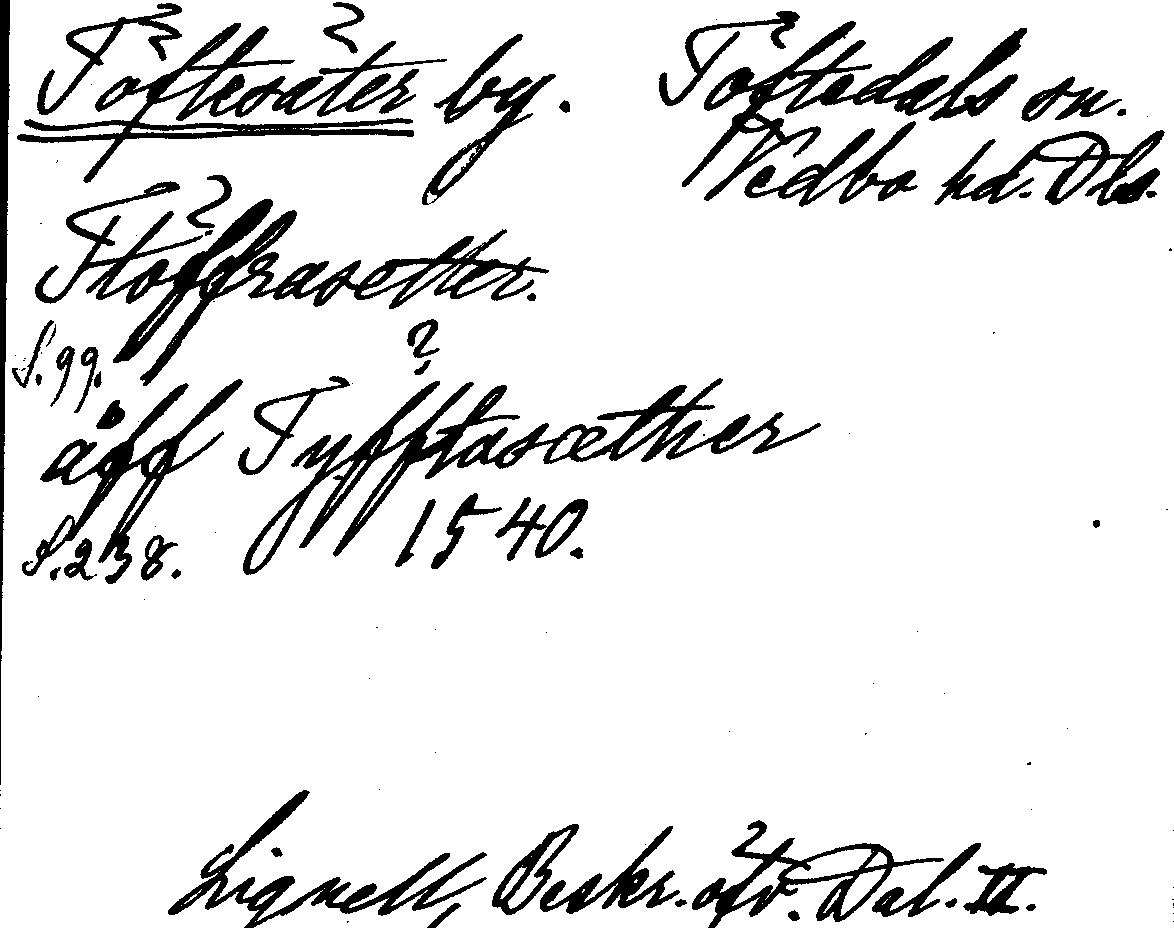 Töftesäter by. Töftedals sn.
Vedbo hd. Dls.
Ttöffrasetter.
S. 99. ?
åff Tyfftasæther
S. 238. 1540.
Lignell, Beskr. öfv. Dal. II.